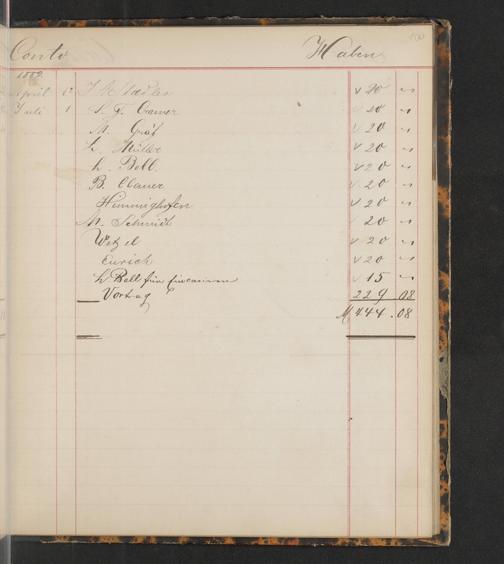 Conto Haben 100
1889.
April 12 Stadler √ 20 „
Juli 1 S. F. Cramer √ 20 „
M. Gräf √ 20 „
L. Müller √ 20 „
L. Bell √ 20 „
B. Clauer √ 20 „
Hemminghofen √ 20 „
M. Schmidt √ 20 „
Wetzel √ 20 „
Eurich √ 20 „
L. Bell für √ 15 „
Vortrag 229 08
M 444.08